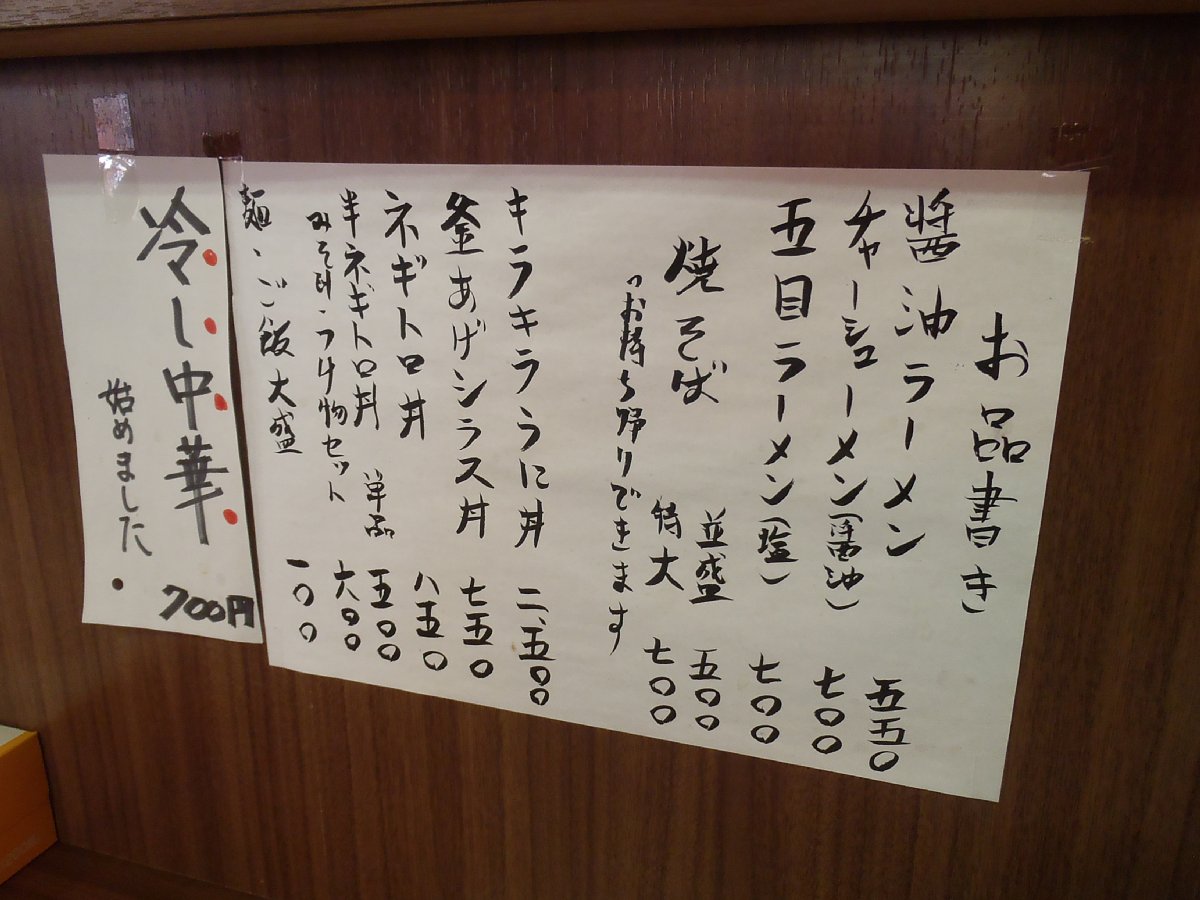 お品書き
醤油ラーメン 五五〇
チャーシューメン(醤油) 七〇〇
五目ラーメン(塩) 七〇〇
焼そば 並盛 五〇〇
特大 七〇〇
っお持ち帰りできます
キラキラうに丼 二、五〇〇
釜あげシラス丼 七五〇
ネギトロ丼 八五〇
半ネギトロ丼 単品 五〇〇
みそ汁・つけ物セット 六〇〇
麺・ご飯大盛 一〇〇
冷し中華
始めました
700円